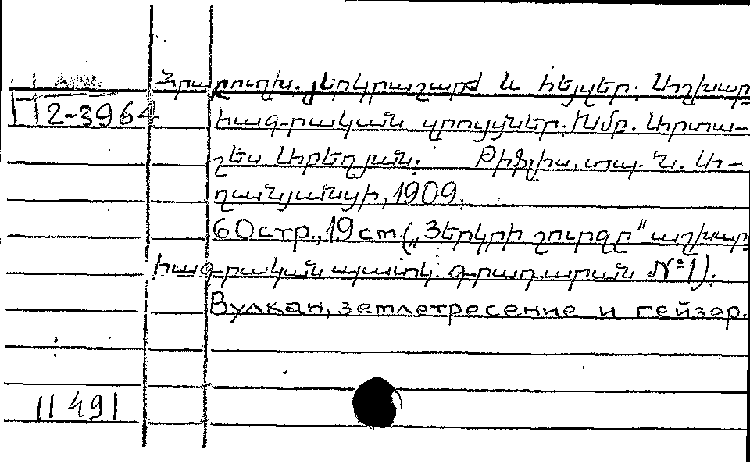 Հրաբուղխ. յերկրաշարժ և հեյսեր. Աշխար
II 2-3964
հագրական զրույցներ. Խմբ. Արտա-
շես Աբեղյան. Թիֆլիս, տպ. Ն. Ա-
ղանյանցի, 1909.
60стр., 19cm („Յերկրի շուրջը" աշխար
հագրական պատկ գրադարան №1).
Вулкан, землетресение и гейзер.
11491